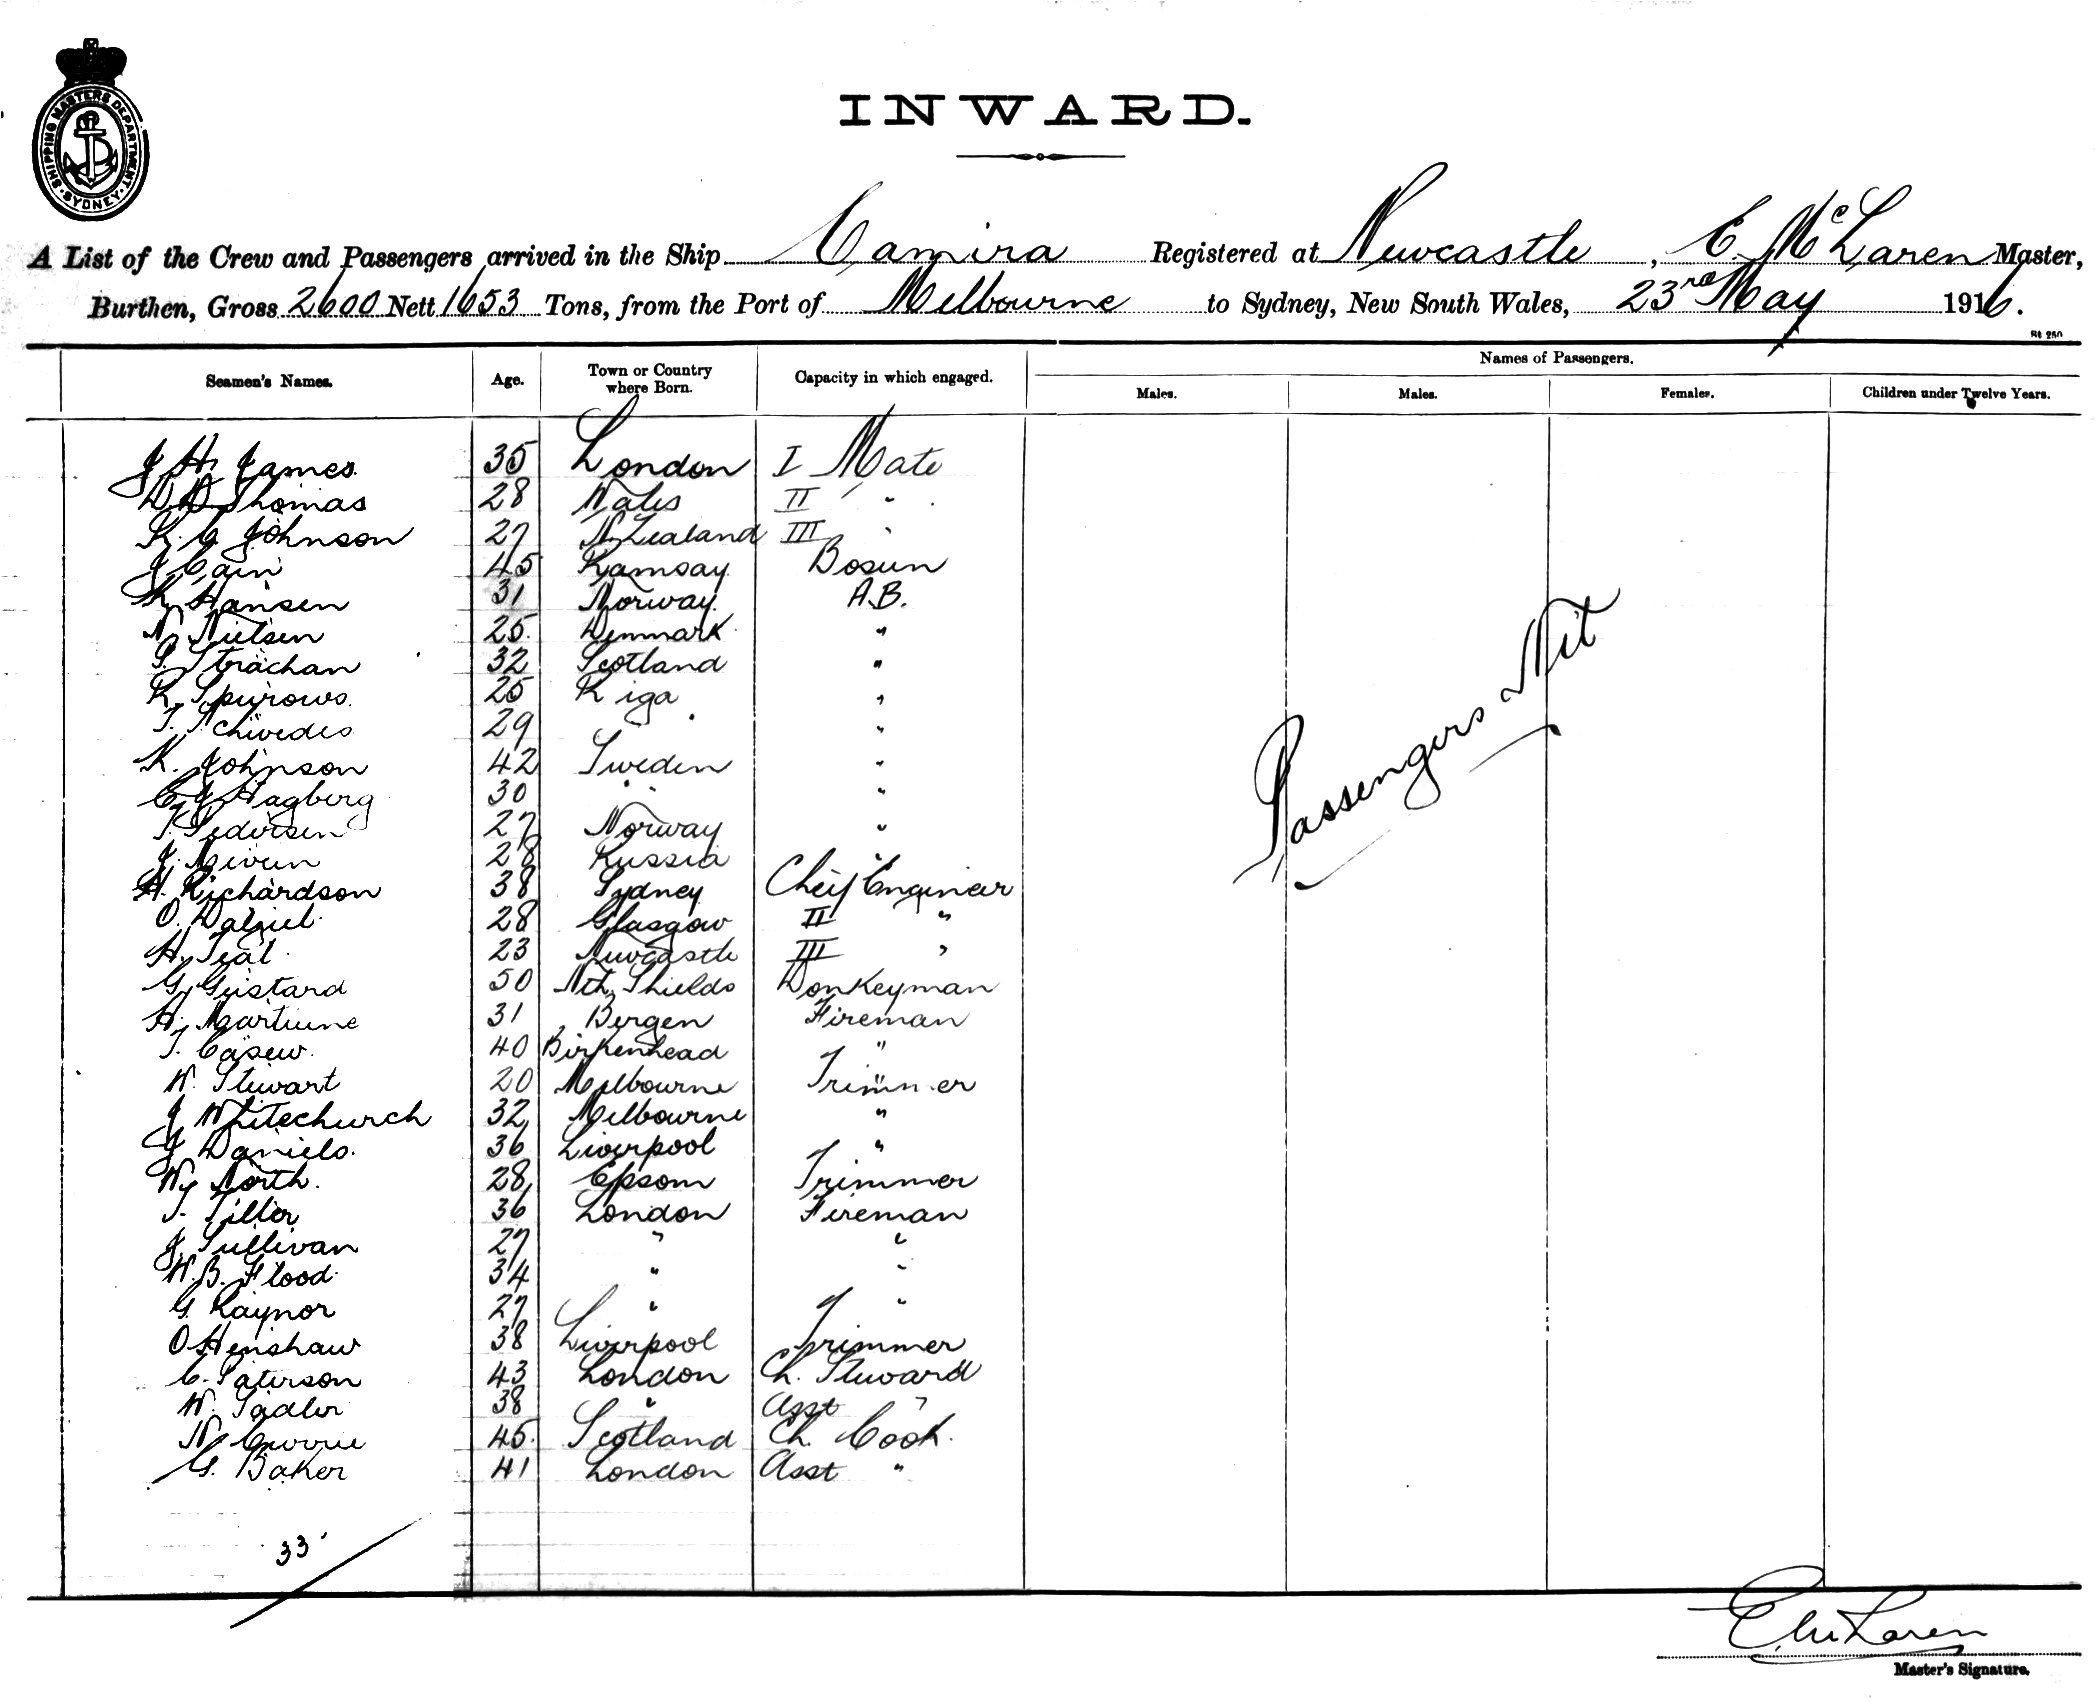 SHIPPING MASTERS DEPARTMENT SYDNEY
INWARD.
A List of the Crew and Passengers arrived in the Ship Camira Registered at Newcastle, E. McLaren Master,
Burthen, Gross 2600 Nett 1653 Tons, from the Port of Melbourne to Sydney, New South Wales, 23rd May 1916.
St 250
Names of Passengers.
Seamen's Names. Age. Town or Country where Born. Capacity in which engaged. Males. Males. Females. Children under Twelve Years.
J. H. James 35 London I Mate
D D Thomas 28 Wales II "
K. C. Johnson 27 N. Zealand III "
J Cain 45 Ramsay Bosun
K Hansen 31 Norway. A.B.
N. Nielsen 25. Denmark "
S. Strachan 32 Scotland "
K Spurows. 25 Riga "
T. Schwedes 29 " "
K. Johnson 42 Sweden "
C J Hagberg 30 " "
K. Pedersen 27 Norway "
J. 28 Russia "
H. Richardson 38 Sydney Cheif Engineer
O. Dalziel 28 Glasgow II "
H. Teal 23 Newcastle III "
G. Gustard 50 Nth Shields Donkeyman
H. 31 Bergen Fireman
T. 40 Birkenhead "
W. Stewart 20 Melbourne Trimmer
J Whitechurch 32 Melbourne "
J Daniels. 36 Liverpool "
W. North. 28 Epsom Trimmer
T. Tiller 36 London Fireman
J. Sullivan 27 " "
W. B. Flood. 34 " "
G. Raynor 27 " "
O Henshaw 38 Liverpool Trimmer
C. Paterson 43 London Ch. Steward
W. Sadler 38 " Asst "
N. Currie 45. Scotland Ch. Cook.
G. Baker 41 London Asst "
Passengers Nil
33
E McLaren
Master's Signature.